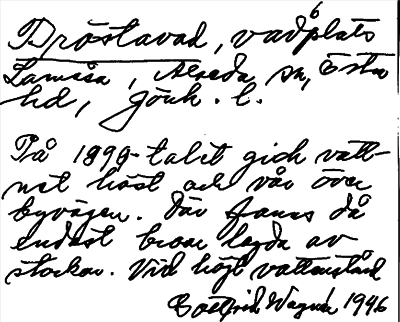 Dröstavad, vadplats
Lamåsa, Alseda sn, Östra
hd, Jönk. l.
På 1890-talet gick vatt-
net höst och vår över
byvägen. Där fanns då
endast broar lagda av
stockar. Vid högt vattenstånd
Gottfrid Wagnér 1946